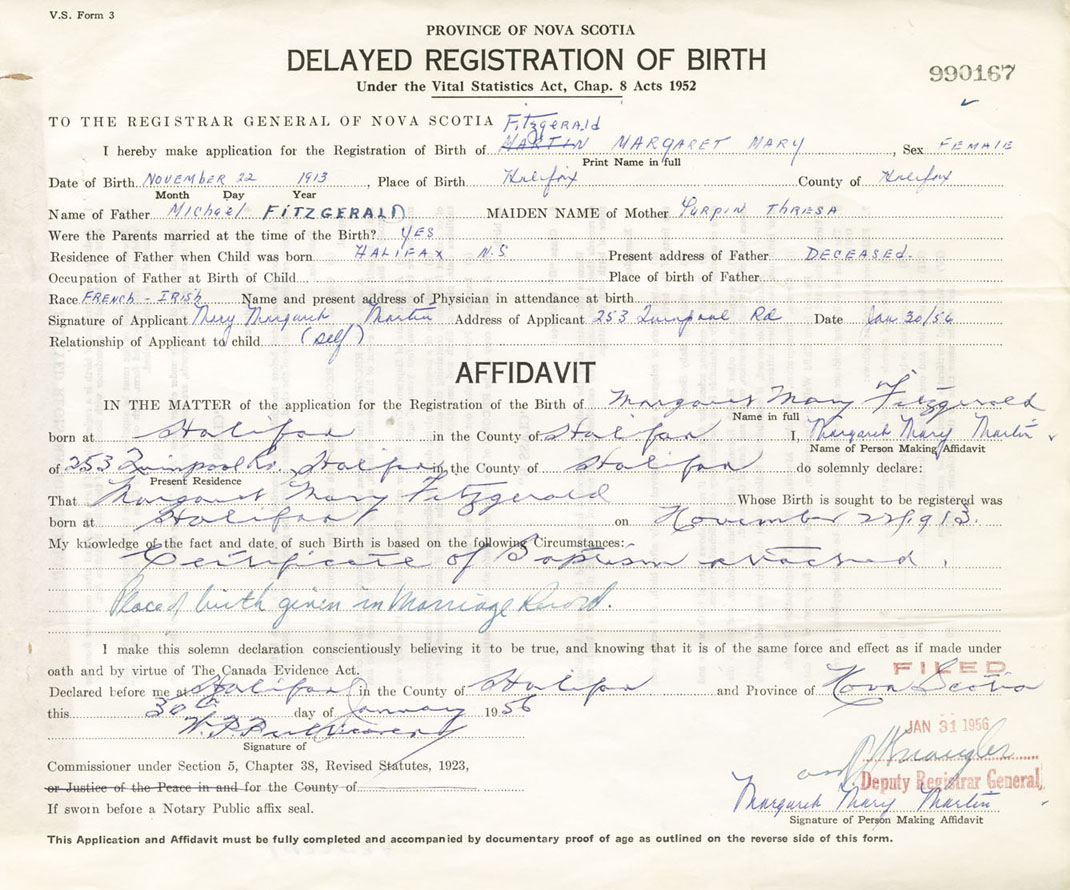 V.S. Form 3
PROVINCE OF NOVA SCOTIA
DELAYED REGISTRATION OF BIRTH
990167
Under the Vital Statistics Act, Chap. 8 Acts 1952
TO THE REGISTRAR GENERAL OF NOVA SCOTIA Fitzgerald
I hereby make application for the Registration of Birth of MARTIN MARGARET MARY, Sex FEMALE
Print Name in full
Date of Birth NOVEMBER 22 1913, Place of Birth Halifax County of Halifax
Month Day Year
Name of Father Michael FITZGERALD MAIDEN NAME of Mother TURPIN THRESA
Were the Parents married at the time of the Birth? YES
Residence of Father when Child was born HALIFAX N.S Present address of Father DECEASED.
Occupation of Father at Birth of Child Place of birth of Father
Race FRENCH - IRISH Name and present address of Physician in attendance at birth
Signature of Applicant Mary Margaret Martin Address of Applicant 253 Quinpool Rd Date Jan 30/56
Relationship of Applicant to child (self)
AFFIDAVIT
IN THE MATTER of the application for the Registration of the Birth of Margaret Mary Fitzgerald
Name in full
born at Halifax in the County of Halifax I, Margaret Mary Martin
Name of Person Making Affidavit
of 253 Quinpool Rd., Halifax in the County of Halifax do solemnly declare:
Present Residence
That Margaret Mary Fitzgerald Whose Birth is sought to be registered was
born at Halifax on November 22/1913.
My knowledge of the fact and date of such Birth is based on the following Circumstances:
Certificate of Baptism attached.
Place of birth given in Marriage Record.
I make this solemn declaration conscientiously believing it to be true, and knowing that it is of the same force and effect as if made under
oath and by virtue of The Canada Evidence Act.
FILED
Declared before me at Halifax in the County of Halifax and Province of Nova Scotia
this 30th day of January 1956
JAN 31 1956
Signature of
Commissioner under Section 5, Chapter 38, Revised Statutes, 1923,
Deputy Registrar General,
or Justice of the Peace in and for the County of
Margaret Mary Martin
If sworn before a Notary Public affix seal.
Signature of Person Making Affidavit
This Application and Affidavit must be fully completed and accompanied by documentary proof of age as outlined on the reverse side of this form.